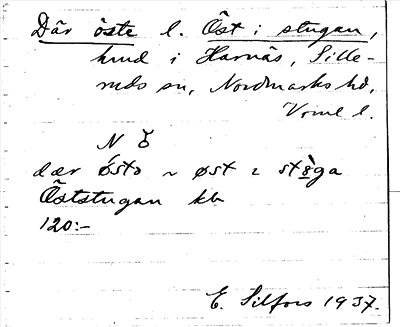 Där öste l. Öst i stugan,
hmd i Harnäs, Sille-
ruds sn, Nordmarks hd,
Vrml l.
N
dær östə ~ øst ɩ stɞ̀ga
Öststugan kb
120:-
E. Silfors 1937.